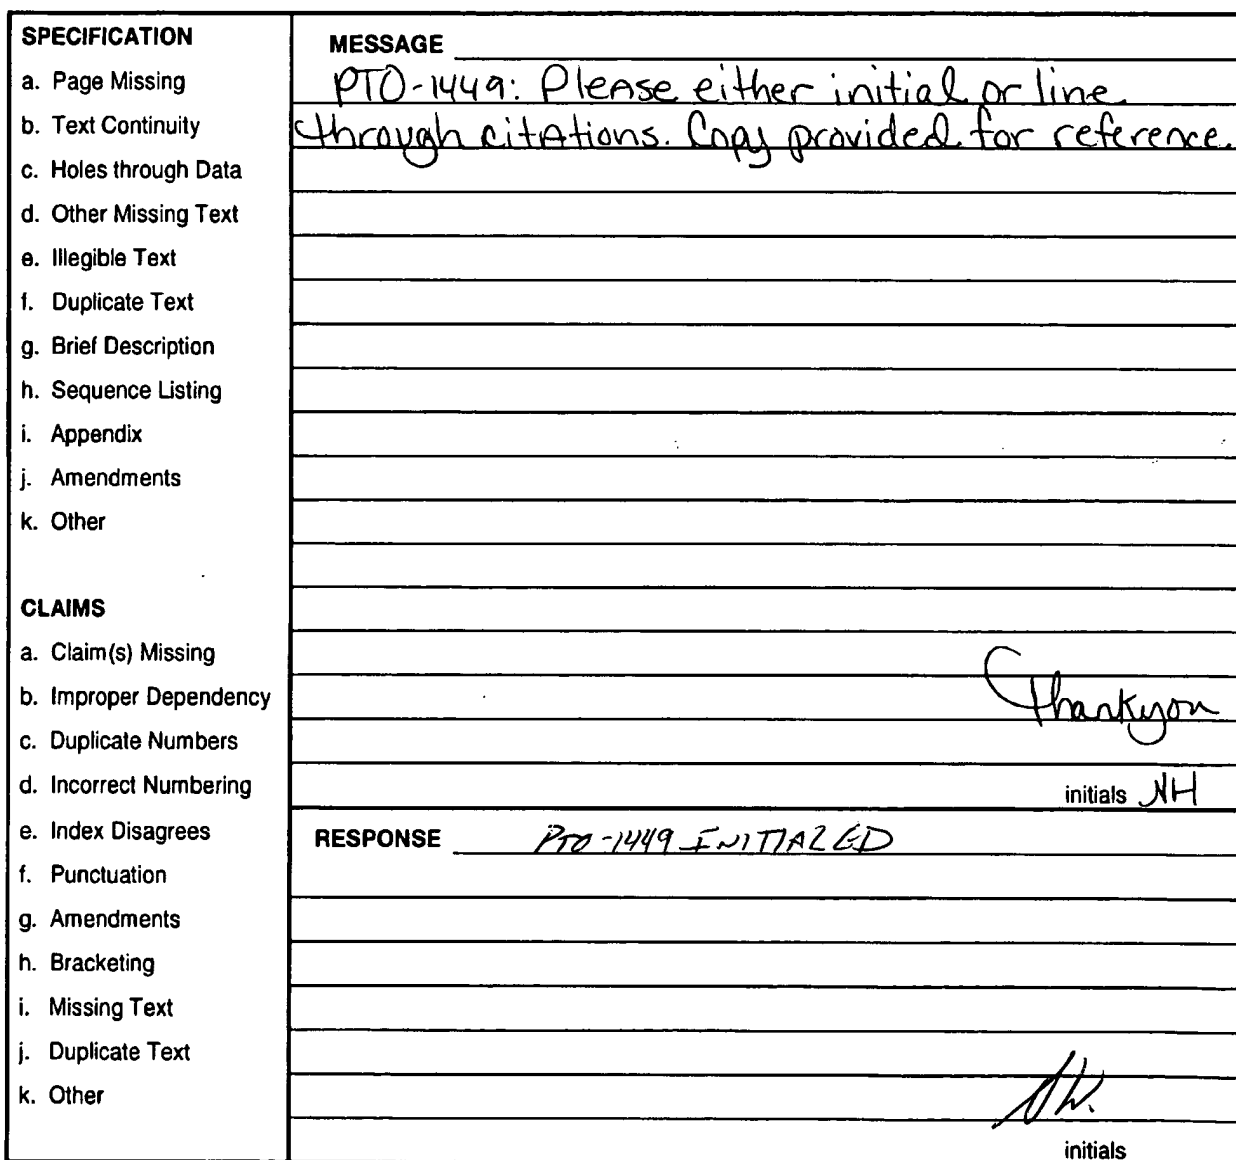 SPECIFICATION
a. Page Missing
b. Text Continuity
c. Holes through Data
d. Other Missing Text
e. Illegible Text
f. Duplicate Text
g. Brief Description
h. Sequence Listing
i. Appendix
j. Amendments
k. Other
CLAIMS
a. Claim(s) Missing
b. Improper Dependency
c. Duplicate Numbers
d. Incorrect Numbering
e. Index Disagrees
f. Punctuation
g. Amendments
h. Bracketing
i. Missing Text
j. Duplicate Text
k. Other
MESSAGE
PTO-1449: Please either initial or line
through citations. Copy provided for reference.
Thankyou
initials NH
RESPONSE PTO-1449 INITIALED
initials